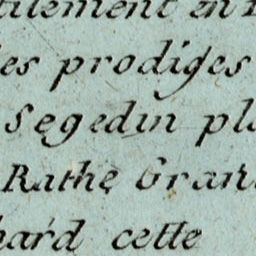 tilement en
es prodiges
Segedin pl
Rathe Gran
hard cette